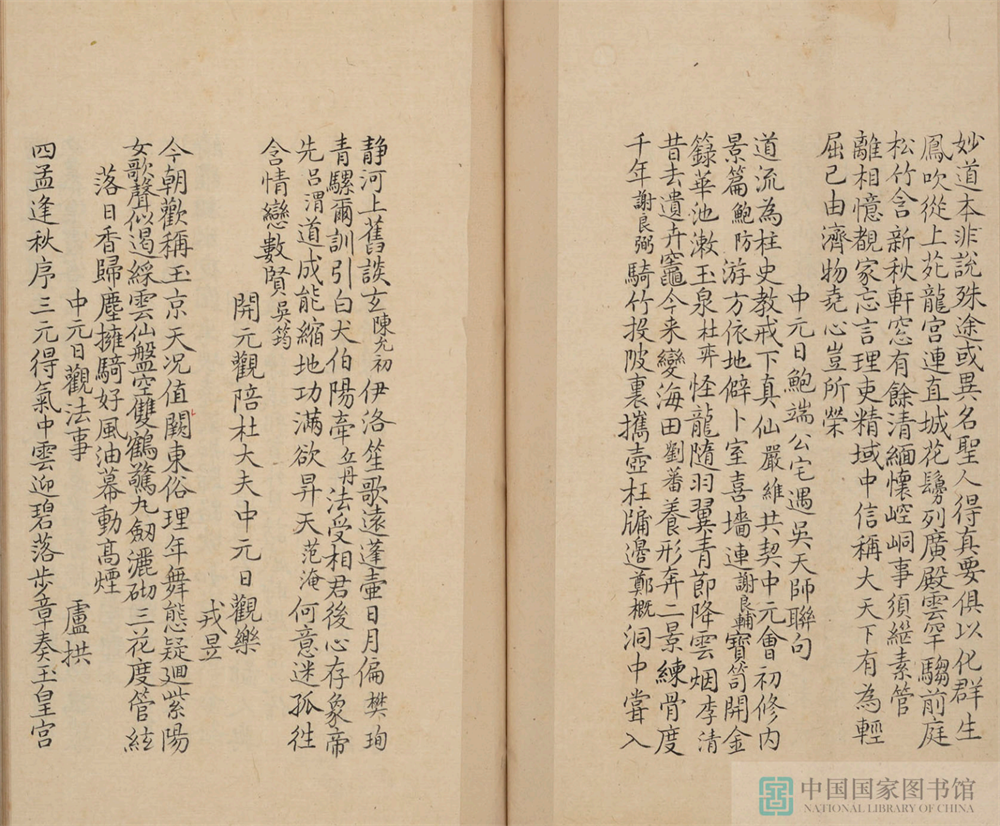 妙道本非說殊途或異名聖人得真要俱以化群生
鳳吹從上苑龍宮連直城花鬘列廣殿雲罕騶前庭
松竹含新秋軒窓有餘清緬懷崆峒事須繼素管
離相憶覩家忘言理更精域中信稱大天下有為輕
屈己由濟物堯心豈所榮
中元日鮑端公宅遇吳天師聯句
道流為柱史教戒下真仙嚴維共契中元會初修內
景篇鮑防游方依地僻卜室喜墻連謝良輔寶笥開金
籙華池漱玉泉杜弈怪龍隨羽翼青節降雲烟李清
昔去遺丹竈今来變海田劉蕃養形奔二景練骨度
千年謝良弼騎竹投陂裏攜壺枉牖邊鄭概洞中嘗入
静河上舊談玄陳允初伊洛笙歌遠蓬壷日月偏樊珣
青騾爾訓引白犬伯陽牽丘丹法受相君後心存象帝
先呂渭道成能縮地功滿欲昇天范淹何意迷孤徃
含情戀數賢吳筠
開元觀陪杜大夫中元日觀樂
戎昱
今朝歡稱玉京天况值關東俗理年舞態疑迴紫陽
女歌聲似遏綵雲仙盤空雙鶴驚九劒灑砌三花度管絃
落日香歸塵擁騎好風油幕動高煙
中元日觀法事
盧拱
四孟逢秋序三元得氣中雲迎碧落步章奏玉皇宮
中国国家图书馆
NATIONAL LIBRARY OF CHINA